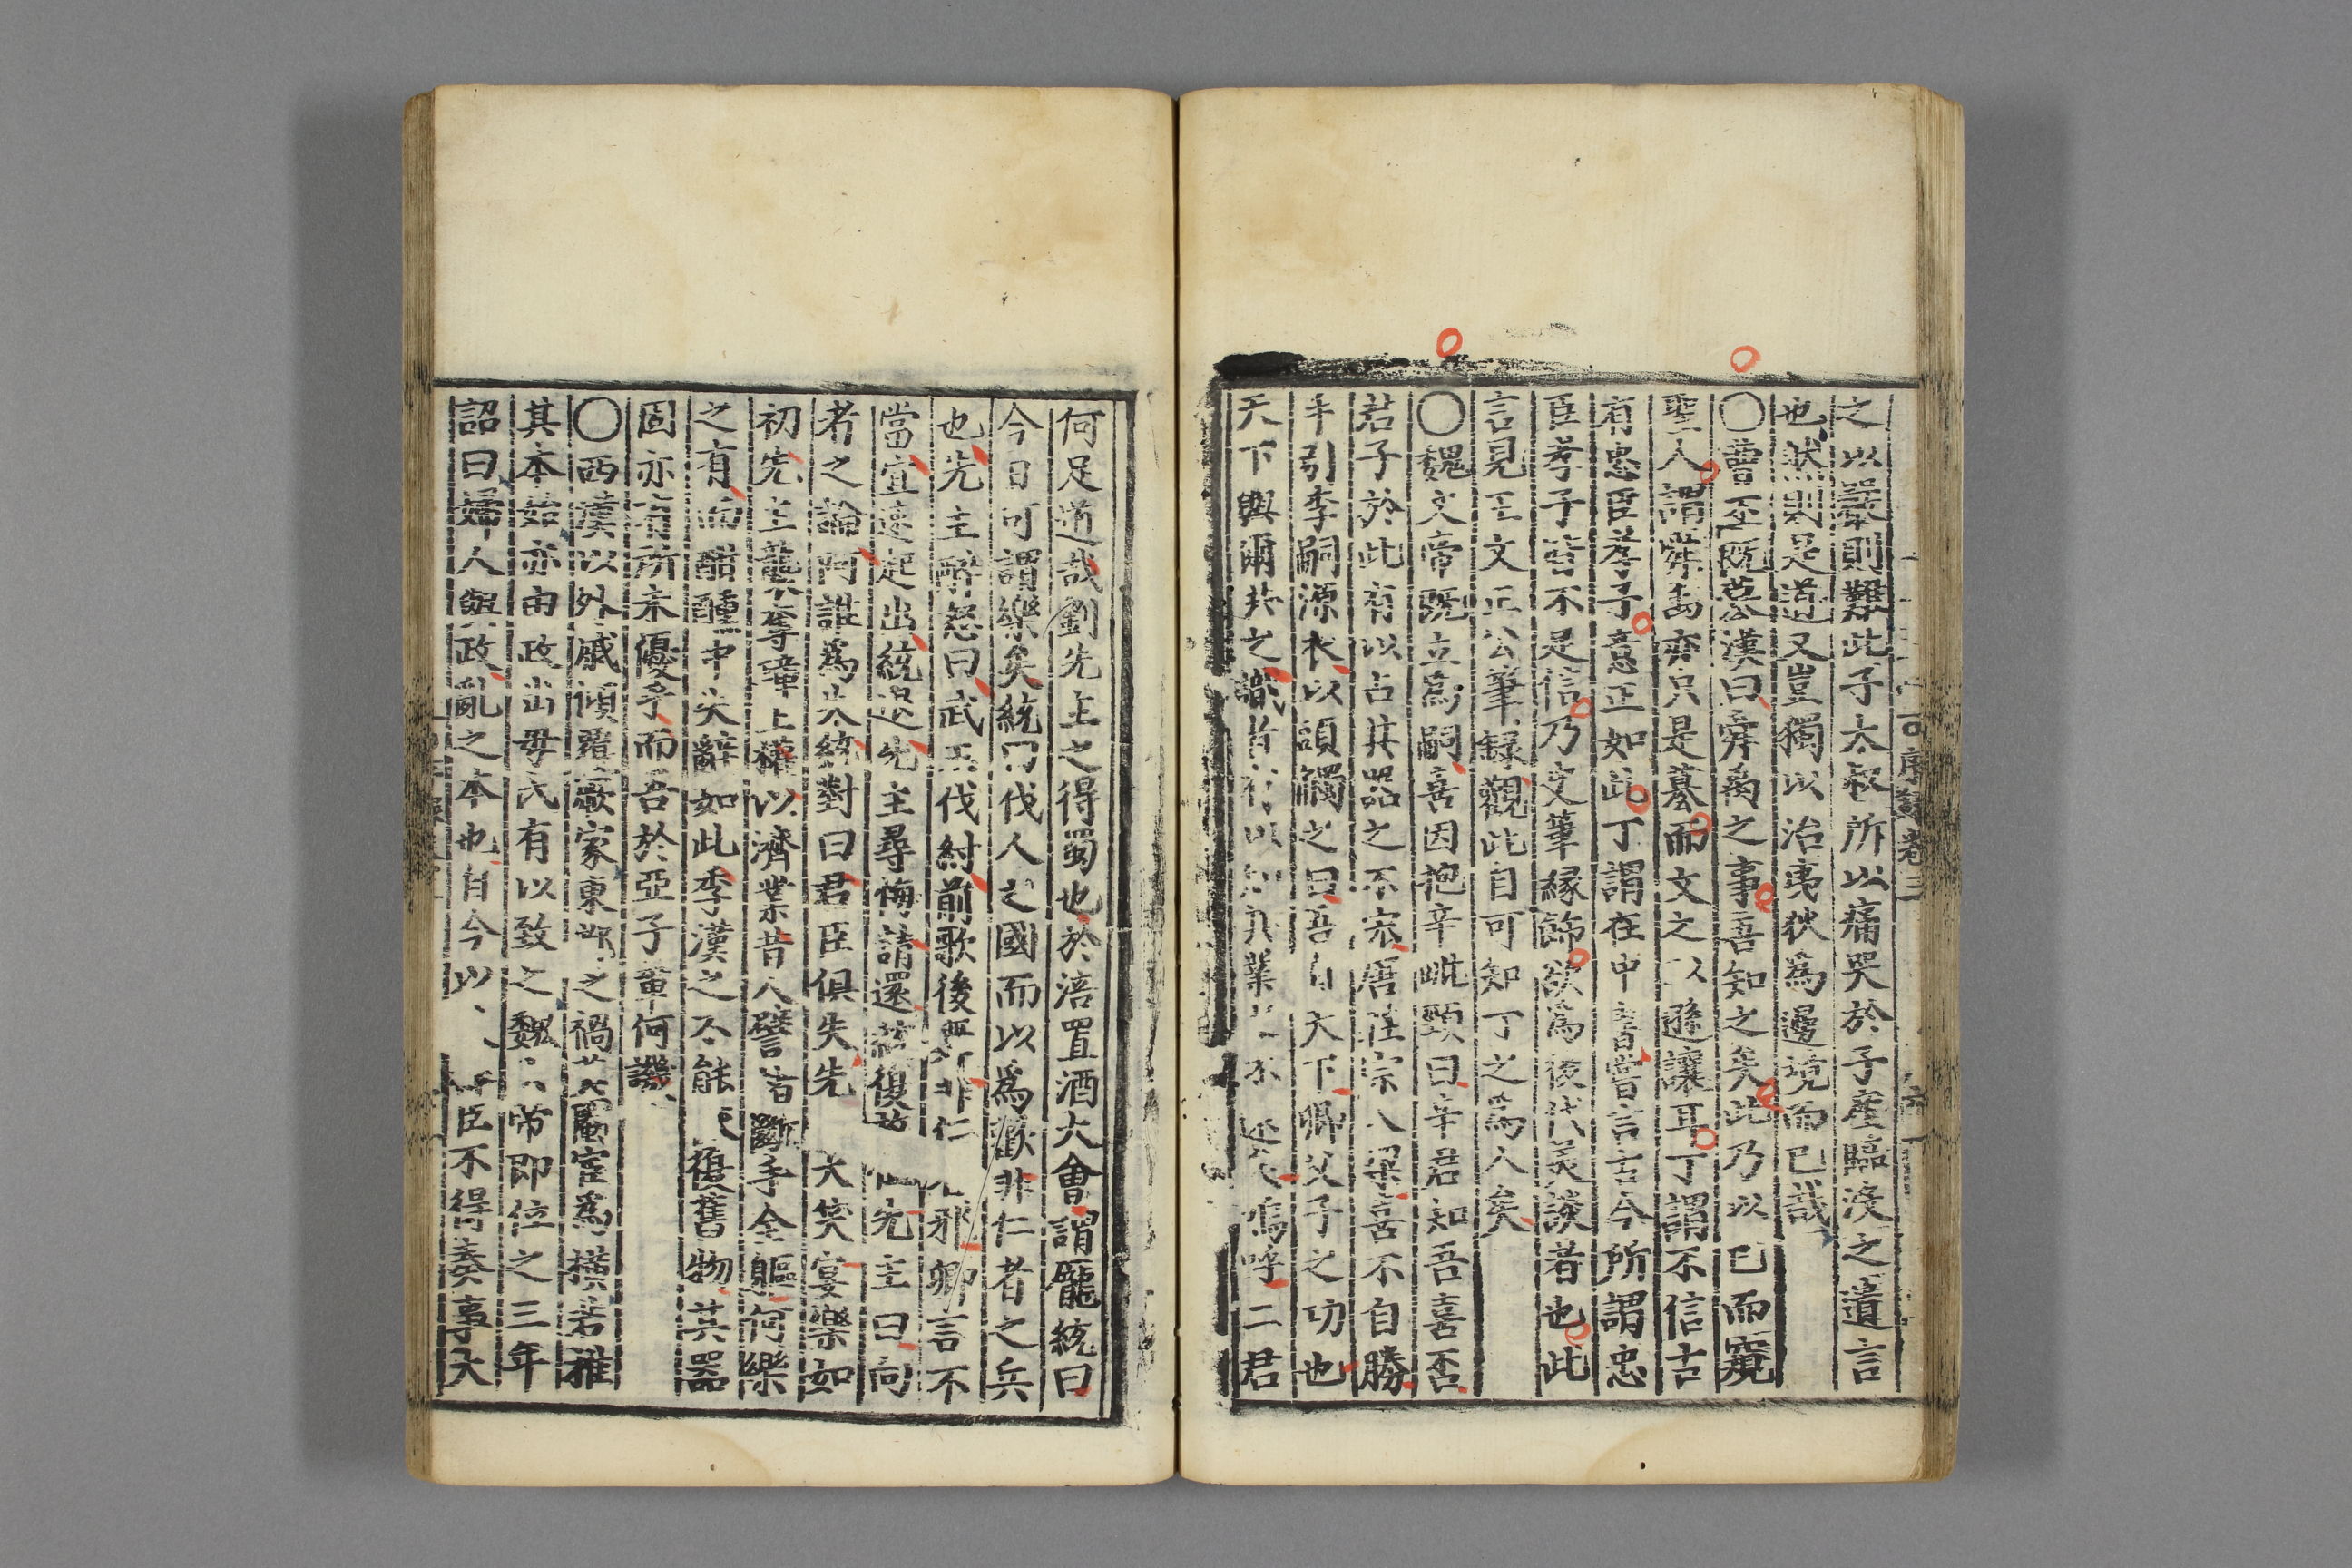 之以嚴則難此子太叔所以痛哭於子產臨沒之遺言
也然則是道又豈獨以治夷狄爲邊境而已哉
〇曹丕旣簒漢曰舜禹之事吾知之矣此乃以己而窺
聖人謂舜禹亦只是簒而文之以遜讓耳丁謂不信古
有忠臣孝子意正如此丁謂在中書嘗言古今所謂忠
臣孝子皆不足信乃史筆緣飾欲爲後代美談者也此
言見王文正公筆錄觀此自可知丁之爲人矣
〇魏文帝旣立爲嗣喜因抱辛毗頸曰辛君知吾喜否
君子於此有以占其器之不宏唐莊宗入梁喜不自勝
手引李嗣源衣以頭觸之曰吾有天下卿父子之功也
天下與爾共之識者有以知其業之不延矣嗚呼二君
何足道哉劉先主之得蜀也於涪置酒大會謂龐統曰
今日可謂樂矣統曰伐人之國而以爲歡非仁者之兵
也先主醉怒曰武王伐紂前歌後舞非仁 邪卿言不
當宜速起出統退先主尋悔請還統復故 先主曰向
者之論阿誰爲失統對曰君臣俱失先 大笑宴樂如
初先主襲奪璋土權以濟業昔人譬諸斷手全軀何樂
之有而酣醺中失辭如此季漢之不能 復舊物其器
固亦有所未優乎而吾於亞子輩何譏
〇西漢以外戚傾覆厥家東都之禍其閹宦爲橫若推
其本始亦由政出母氏有以致之魏文帝即位之三年
詔曰婦人與政亂之本也自今以 臣不得奏事太